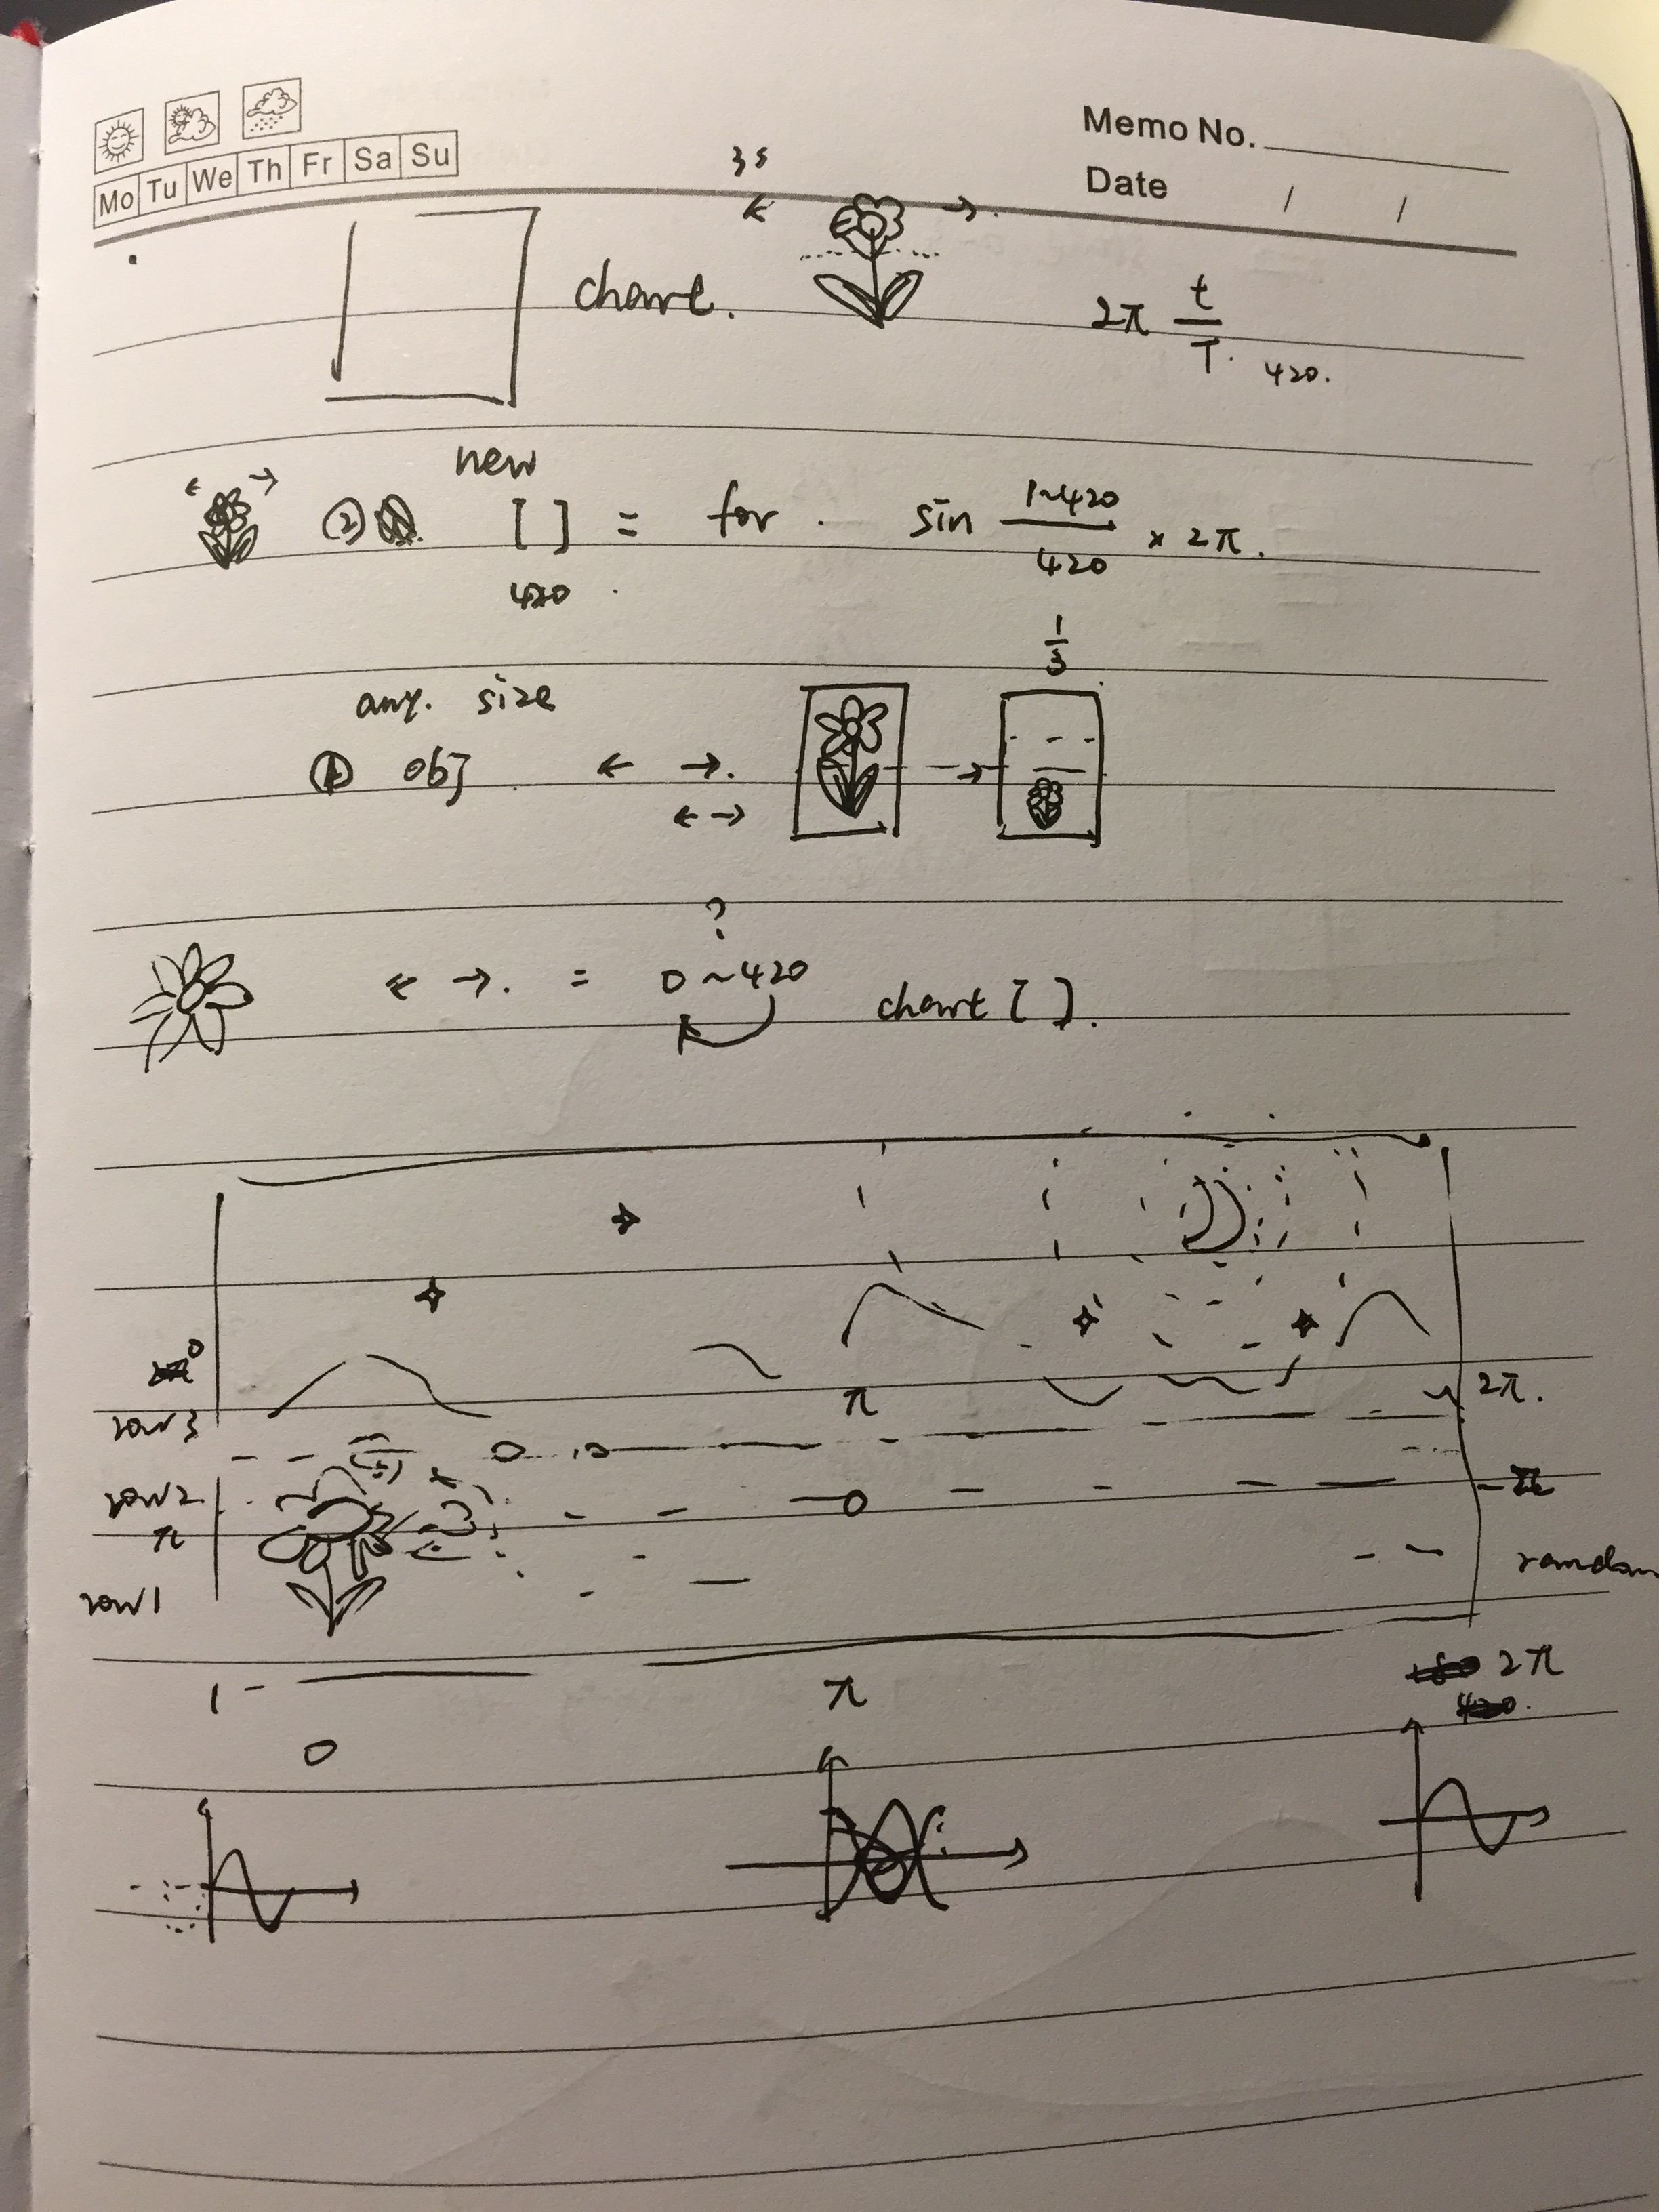 Mo Tu We Th Fr Sa Su
Memo No.
Date / /
3s
chart.
2π t/T. 420.
new
② [ ] = for . sin 1~420/420 × 2π.
420
1/3
any. size
① obj
?
= 0 ~ 420 chart [ ].
0
π 2π.
row 3
row 2
π
random
row 1
1 π 2π
420.
0